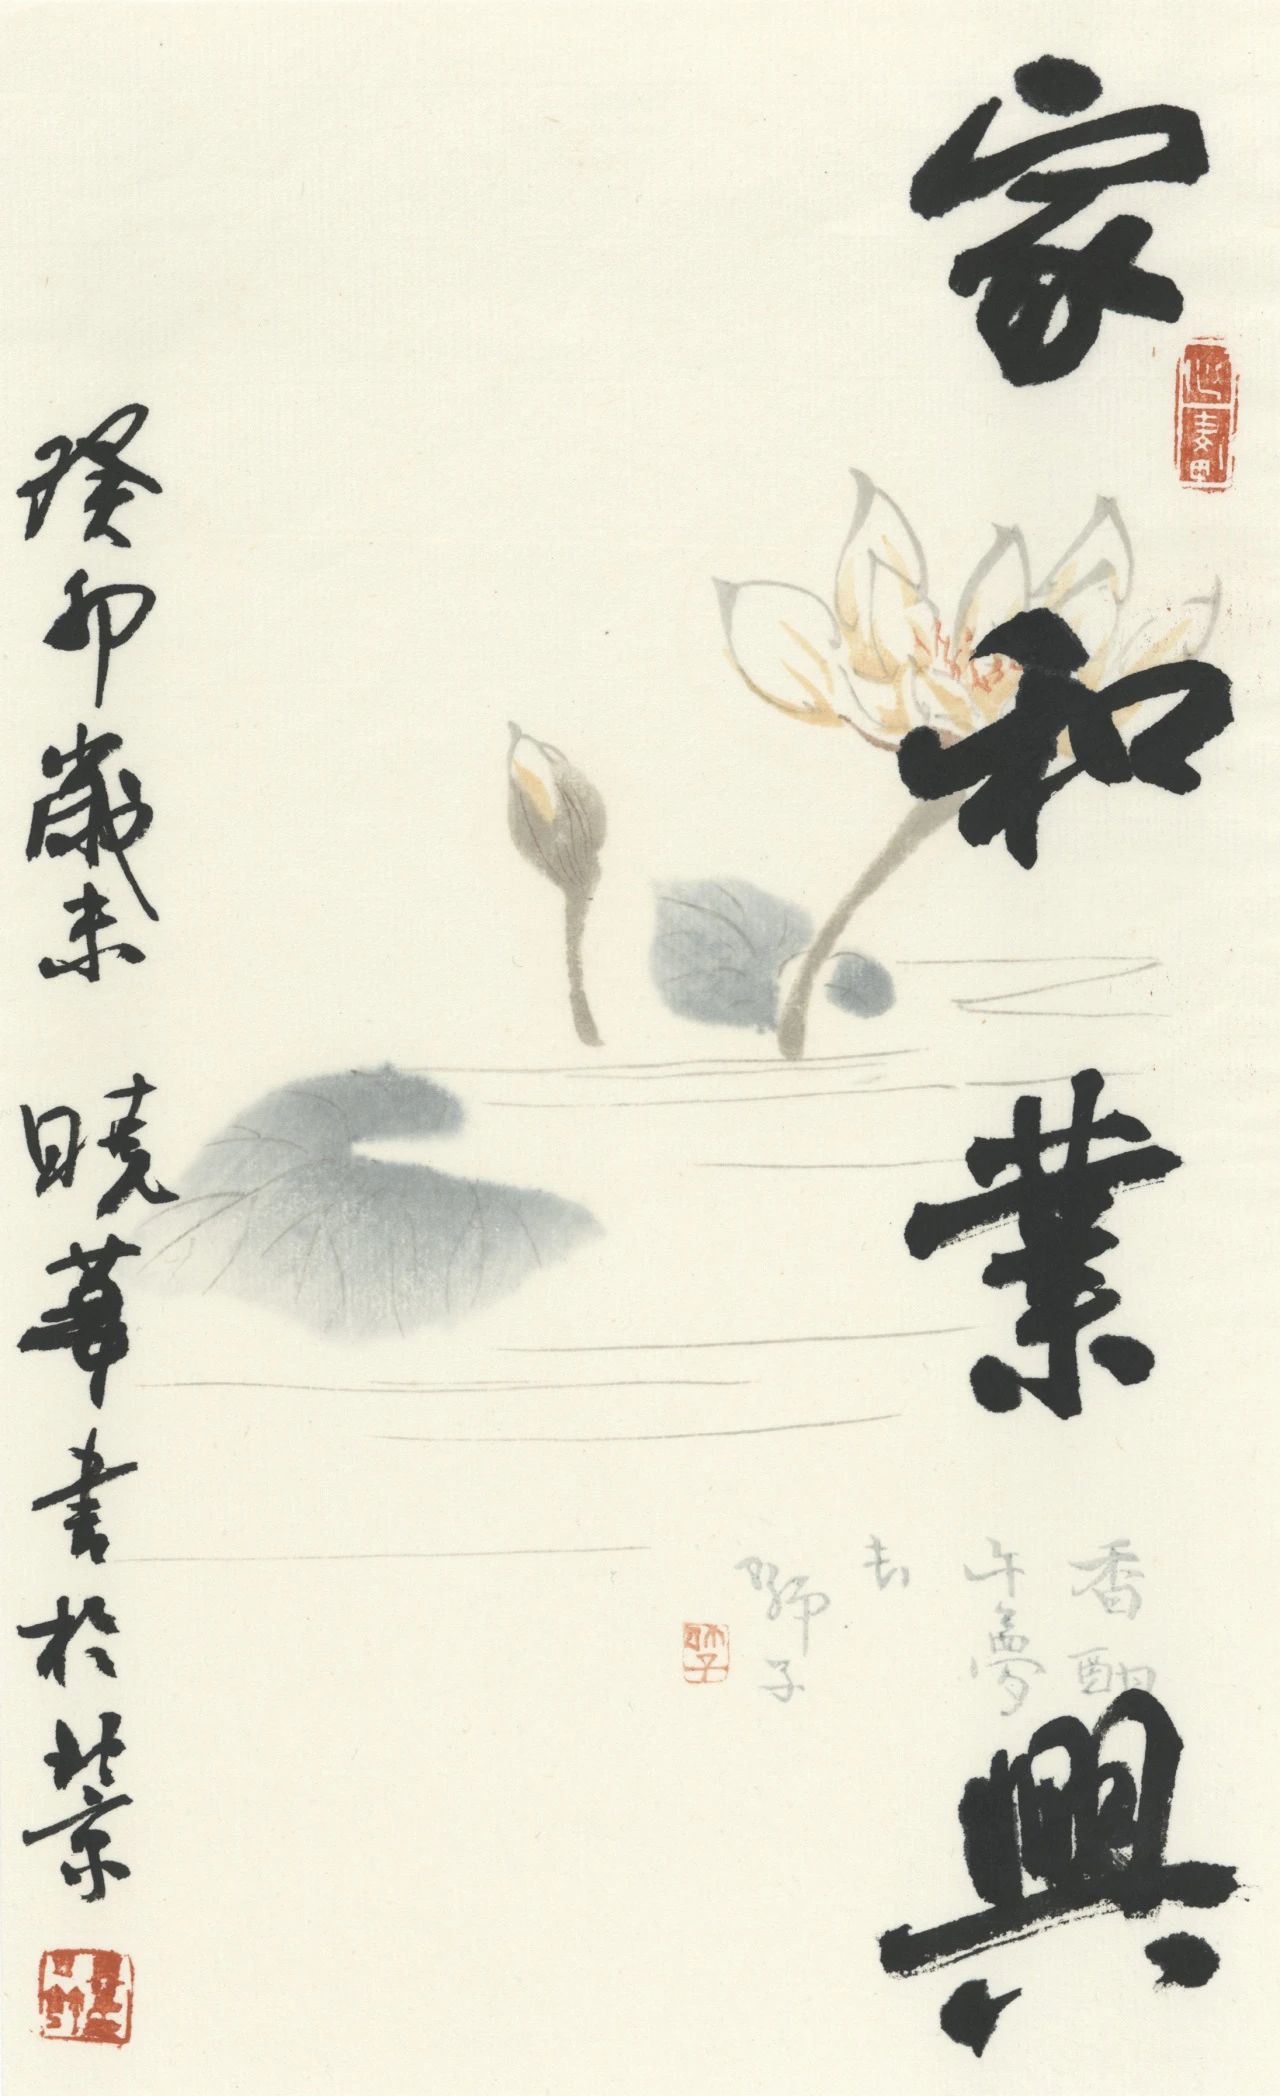 家和業興
香酣
午夢
去
師子
癸卯歲末 曉華書於北京